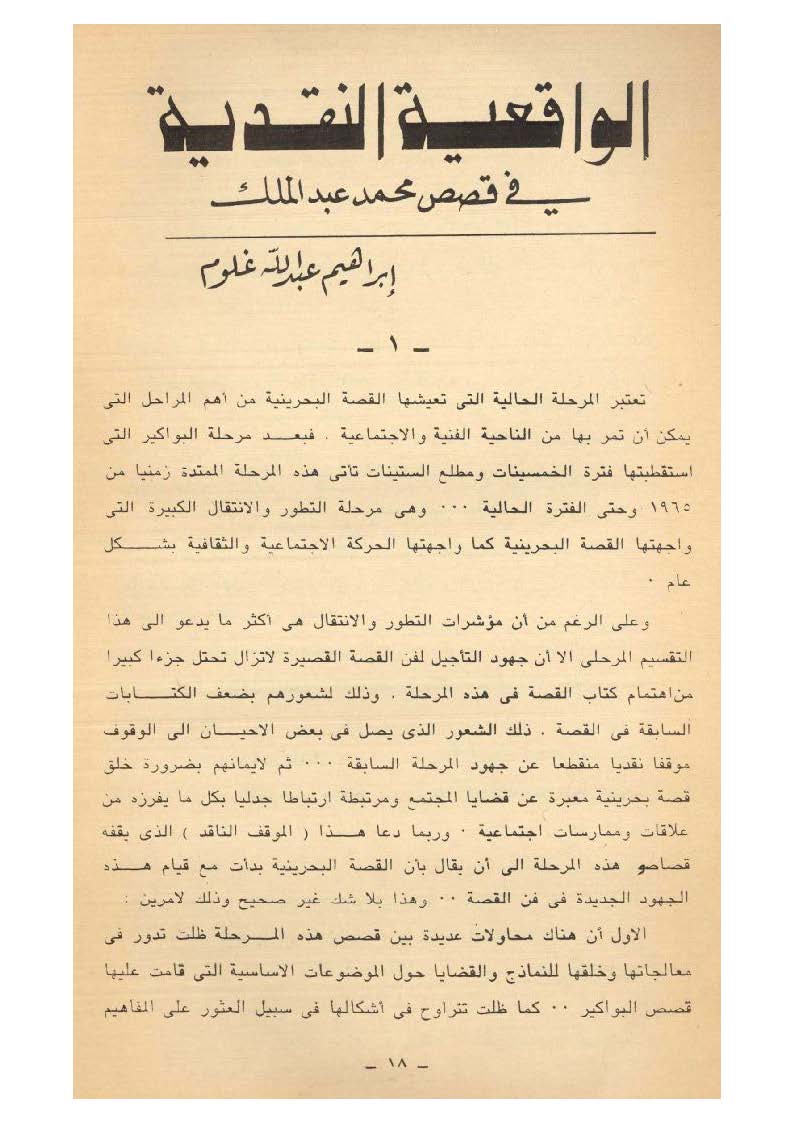 الواقعية النقدية
في قصص محمد عبد الملك
إبراهيم عبدالله غلوم
ـ ١ ـ
تعتبر المرحلة الحالية التى تعيشها القصة البحرينية من أهم المراحل التى
يمكن أن تمر بها من الناحية الفنية والاجتماعية . فبعـــد مرحلة البواكير التى
استقطبتها فترة الخمسينات ومطلع الستينات تأتى هذه المرحلة الممتدة زمنيا من
١٩٦٥ وحتى الفترة الحالية ٠٠٠ وهى مرحلة التطور والانتقال الكبيرة التى
واجهتها القصة البحرينية كما واجهتها الحركة الاجتماعية والثقافية بشـــكل
عام ٠
وعلى الرغم من أن مؤشرات التطور والانتقال هى أكثر ما يدعو الى هذا
التقسيم المرحلى الا أن جهود التأجيل لفن القصة القصيرة لاتزال تحتل جزءا كبيرا
من اهتمام كتاب القصة فى هذه المرحلة . وذلك لشعورهم بضعف الكتـــابات
السابقة فى القصة . ذلك الشعور الذى يصل فى بعض الاحيـــان الى الوقوف
موقفا نقديا منقطعا عن جهود المرحلة السابقة ٠٠٠ ثم لايمانهم بضرورة خلق
قصة بحرينية معبرة عن قضايا المجتمع ومرتبطة ارتباطا جدليا بكل ما يفرزه من
علاقات وممارسات اجتماعية ٠ وربما دعا هـــذا ( الموقف الناقد ) الذى يقفه
قصاصو هذه المرحلة الى أن يقال بأن القصة البحرينية بدأت مع قيام هـــذه
الجهود الجديدة فى فن القصة ٠٠ وهذا بلا شك غير صحيح وذلك لامرين :
الاول أن هناك محاولات عديدة بين قصص هذه المـــرحلة ظلت تدور فى
معالجاتها وخلقها للنماذج والقضايا حول الموضوعات الاساسية التى قامت عليها
قصص البواكير ٠٠ كما ظلت تتراوح فى أشكالها فى سبيل العثور على المفاهيم
ـ ١٨ ـ